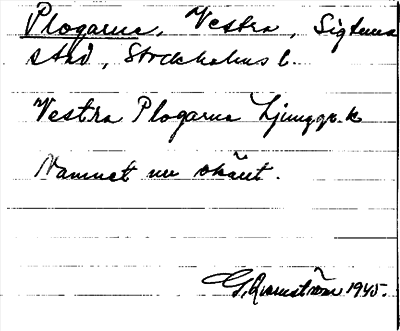 Plogarne, Vestra, Sigtuna
stad, Stockholms l.
Vestra Plogarna Ljunggr. k
Namnet nu okänt.
G. Qvarnström 1945.